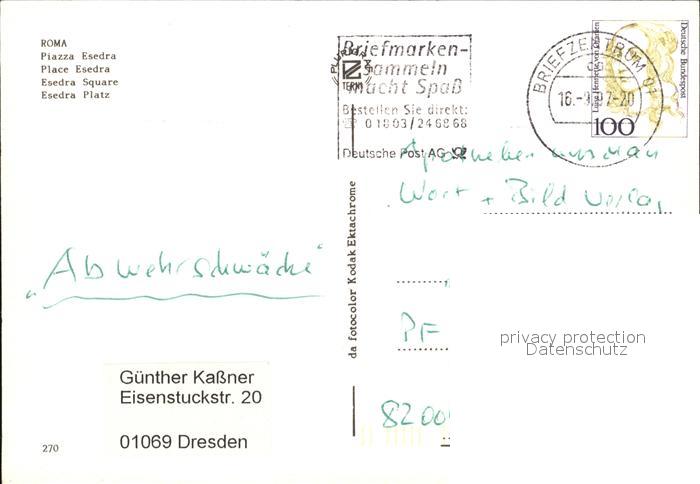 ROMA
Piazza Esedra
Place Esedra
Esedra Square
Esedra Platz
Briefmarken-
sammeln
macht Spaß
Bestellen Sie direkt:
☏ 01803/246868
Deutsche Post AG
BRIEFZENTRUM 01
16.-9.97-20
Deutsche Bundespost
Luise Henriette von Oranien
100
Wort + Bild Verlag
PF
82 00
"Abwehrschwäche"
da fotocolor Kodak Ektachrome
Günther Kaßner
Eisenstuckstr. 20
01069 Dresden
270
privacy protection
Datenschutz